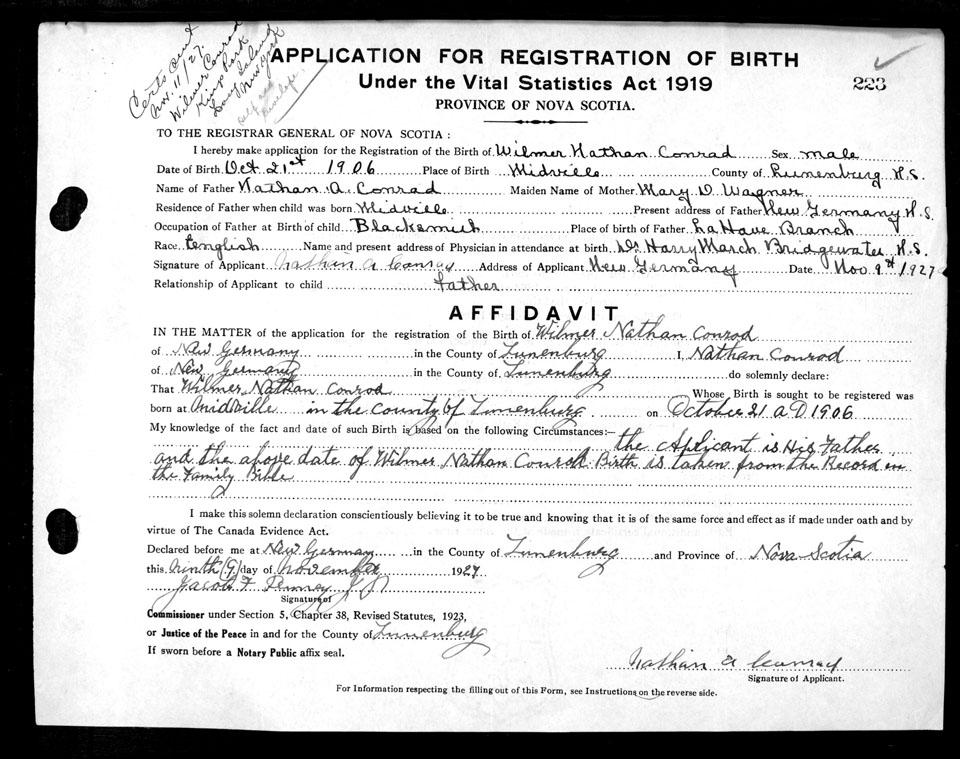 Certs sent
Nov. 11/27.
Wilmer Conrad
Kings Park
Long Island
New York
APPLICATION FOR REGISTRATION OF BIRTH
Under the Vital Statistics Act 1919
223
PROVINCE OF NOVA SCOTIA.
TO THE REGISTRAR GENERAL OF NOVA SCOTIA :
I hereby make application for the Registration of the Birth of Wilmer Nathan Conrad Sex male
Date of Birth Oct 21st 1906 Place of Birth Midville County of Lunenburg N.S.
Name of Father Nathan A. Conrad Maiden Name of Mother Mary D Wagner
Residence of Father when child was born Midville Present address of Father New Germany N.S.
Occupation of Father at Birth of child Blacksmith Place of birth of Father LaHave Branch
Race English Name and present address of Physician in attendance at birth Dr Harry March Bridgewater N.S.
Signature of Applicant Nathan A Conrad Address of Applicant New Germany Date Nov 9th 1927
Relationship of Applicant to child father
AFFIDAVIT
IN THE MATTER of the application for the registration of the Birth of Wilmer Nathan Conrod
of New Germany in the County of Lunenburg I, Nathan Conrod
of New Germany in the County of Lunenburg do solemnly declare:
That Wilmer Nathan Conrod Whose Birth is sought to be registered was
born at Midville in the county of Lunenburg on October 21 AD 1906
My knowledge of the fact and date of such Birth is based on the following Circumstances:— the Applicant is His Father
and the above date of Wilmer Nathan Conrod Birth is taken from the Record in
the Family Bible
I make this solemn declaration conscientiously believing it to be true and knowing that it is of the same force and effect as if made under oath and by
virtue of The Canada Evidence Act.
Declared before me at New Germany in the County of Lunenburg and Province of Nova Scotia
this Ninth (9) day of November 1927
Jacob F Penney J P
Signature of
Commissioner under Section 5, Chapter 38, Revised Statutes, 1923,
or Justice of the Peace in and for the County of Lunenburg
If sworn before a Notary Public affix seal.
Nathan A Conrad
Signature of Applicant.
For Information respecting the filling out of this Form, see Instructions on the reverse side.